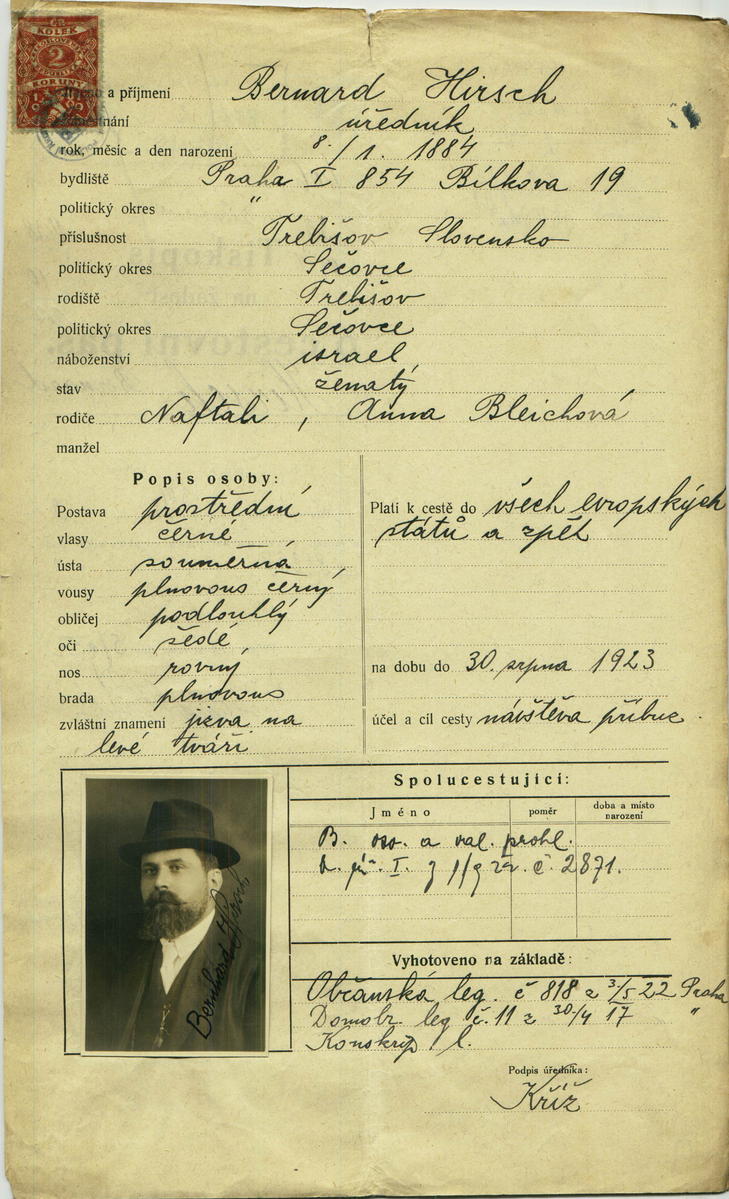 KOLEK
2
KORUNY
Jméno a příjmení Bernard Hirsch
zaměstnání úředník
rok, měsíc a den narození 8./1. 1884
bydliště Praha I 854 Bílkova 19
politický okres "
příslušnost Trebišov Slovensko
politický okres Sečovce
rodiště Trebišov
politický okres Sečovce
náboženství israel
stav ženatý
rodiče Naftali, Anna Bleichová
manžel
Popis osoby:
Postava prostřední
vlasy černé
ústa souměrná
vousy plnovous černý
obličej podlouhlý
oči šedé
nos rovný
brada plnovous
zvláštní znamení jizva na
levé tváři
Platí k cestě do všech evropských
států a zpět
na dobu do 30. srpna 1923
účel a cíl cesty návštěva příbuz.
Bernhard Hirsch
Spolucestující:
Jméno poměr doba a místo
narození
B. oso. a val. prohl.
I. z 1/9 č. 2871.
Vyhotoveno na základě:
Občanská leg. č 818 z 3/5 22 Praha
Domobr. leg č. 11 z 30/4 17 "
Konskrip l.
Podpis úředníka:
Kříž